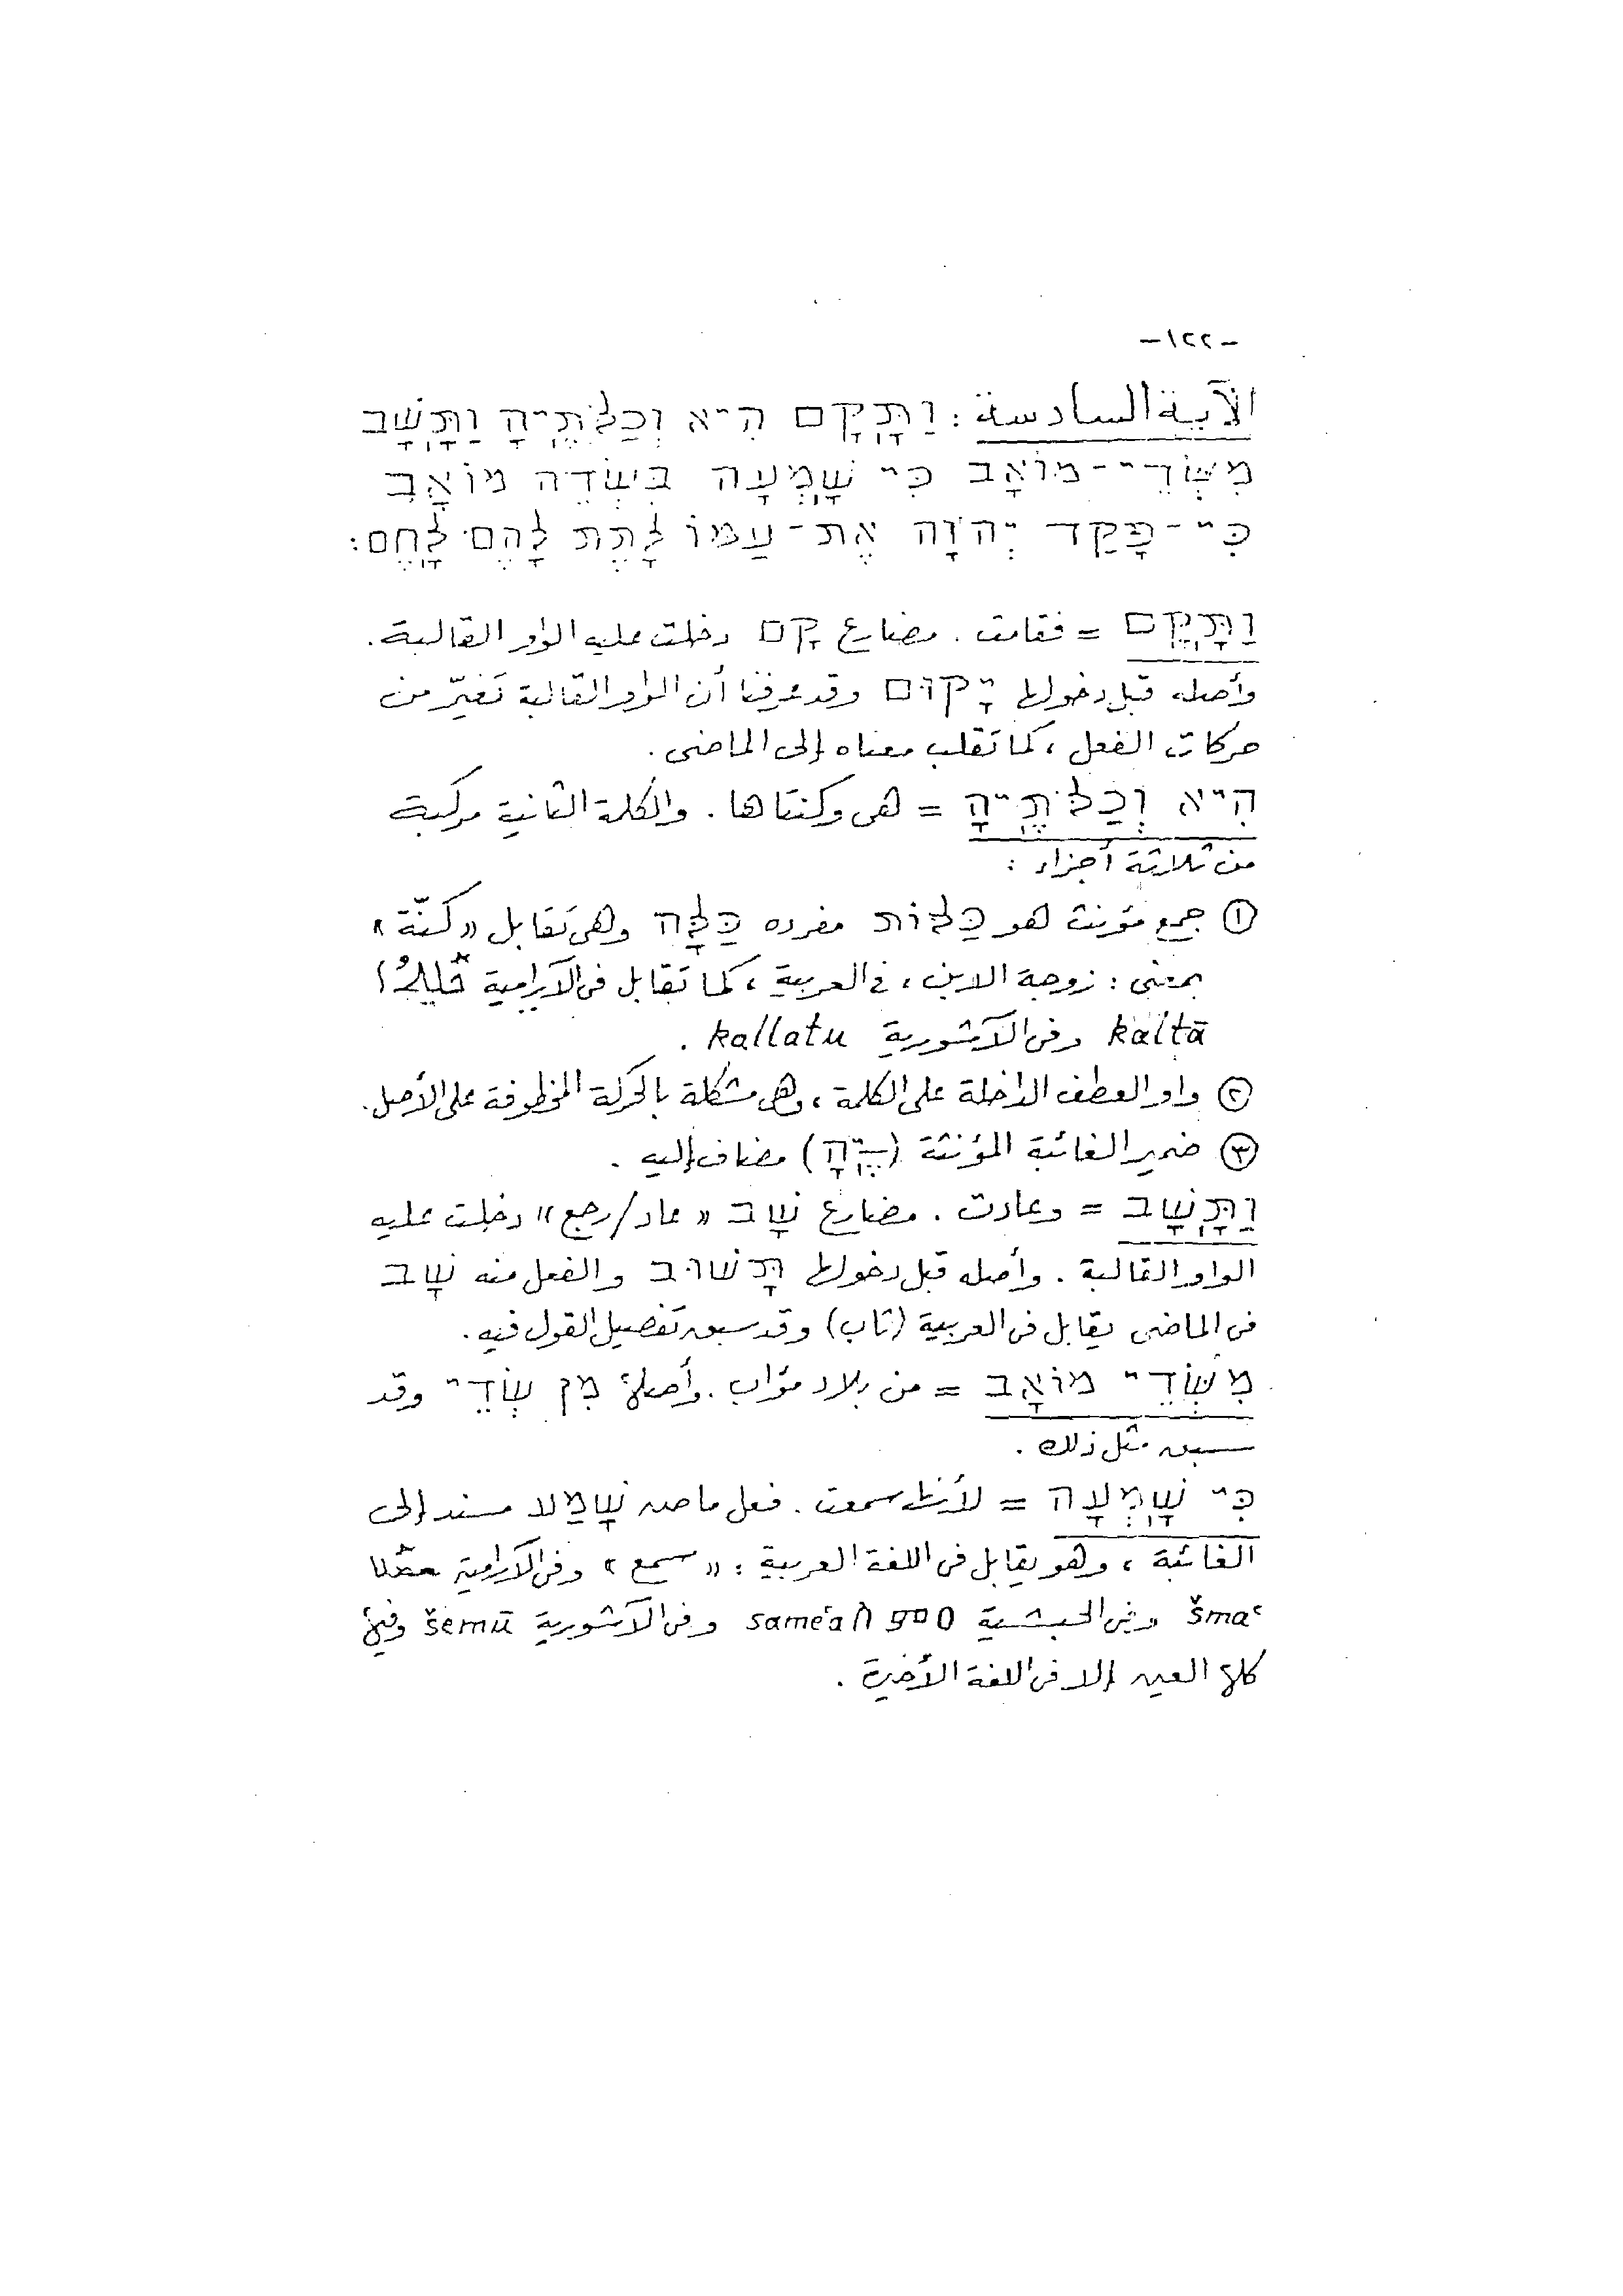 -١٢٢-
الآية السادسة : וַתָּקָם הִיא וְכַלֹּתֶיהָ וַתָּשָׁב
מִשְּׂדֵי-מוֹאָב כִּי שָׁמְעָה בִּשְׂדֵה מוֹאָב
כִּי-פָקַד יְהֹוָה אֶת-עַמּוֹ לָתֶת לָהֶם לָחֶם:
וַתָּקָם = فقامت . مضارع קָם دخلت عليه الواو القالبة .
وأصله قبل دخولها יָקוּם وقد عرفنا أن الواو القالبة تغيّر من
حركات الفعل ، كما تقلب معناه إلى الماضى .
הִיא וְכַלֹּתֶיהָ = هى وكنتاها . والكلمة الثانية مركبة
من ثلاثة أجزاء :
① جمع مؤنث هو כַּלּוֹת مفرده כַּלָּה وهى تقابل « كنّة »
بمعنى : زوجة الابن ، فى العربية ، كما تقابل فى الآرامية
kaltā وفى الآشورية kallatu .
② واو العطف الداخلة على الكلمة ، وهى مشكلة بالحركة المخطوفة على الأصل .
③ ضمير الغائبة المؤنثة (ֶיהָ) مضاف إليه .
וַתָּשָׁב = وعادت . مضارع שָׁב « عاد / رجع » دخلت عليه
الواو القالبة . وأصله قبل دخولها תָּשׁוּב والفعل منه שָׁב
فى الماضى يقابل فى العربية (تاب) وقد سبق تفصيل القول فيه .
מִשְּׂדֵי מוֹאָב = من بلاد مؤاب . وأصلها מִן שְׂדֵי وقد
سبق مثل ذلك .
כִּי שָׁמְעָה = لأنها سمعت . فعل ماض שָׁמַע مسند إلى
الغائبة ، وهو يقابل فى اللغة العربية : « سمع » وفى الآرامية ܫܡܥ
šmaʿ وفى الحبشية ሰምዐ sameʿa وفى الآشورية šemū وفيها
كلها العين إلا فى اللغة الأخيرة .